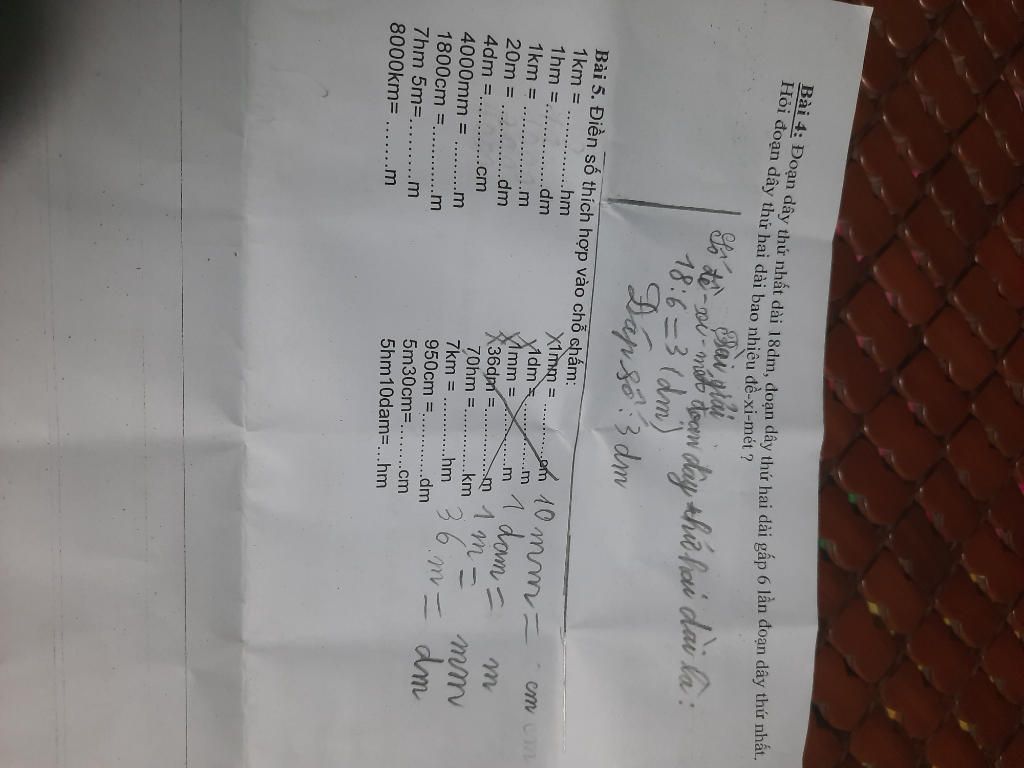 Bài 4: Đoạn dây thứ nhất dài 18dm, đoạn dây thứ hai dài gấp 6 lần đoạn dây thứ nhất.
Hỏi đoạn dây thứ hai dài bao nhiêu đề-xi-mét ?
Bài giải
Số đề-xi-mét đoạn dây thứ hai dài là:
18:6=3(dm)
Đáp số: 3 dm
Bài 5. Điền số thích hợp vào chỗ chấm:
1km = ............hm
1hm = ............dm
1km = ............m
20m = ............dm
4dm = ............cm
4000mm = .........m
1800cm = ..........m
7hm 5m= ..........m
8000km= ........m
X 1mm = ............cm
X 1dm = ............m
X 1mm = ............m
X 36dm = ............m
70hm = ............km
7km = ............hm
950cm = ............dm
5m30cm=........cm
5hm10dam=...hm
10 mm = . cm
1 dam = m
1 m = mm
36 m = dm